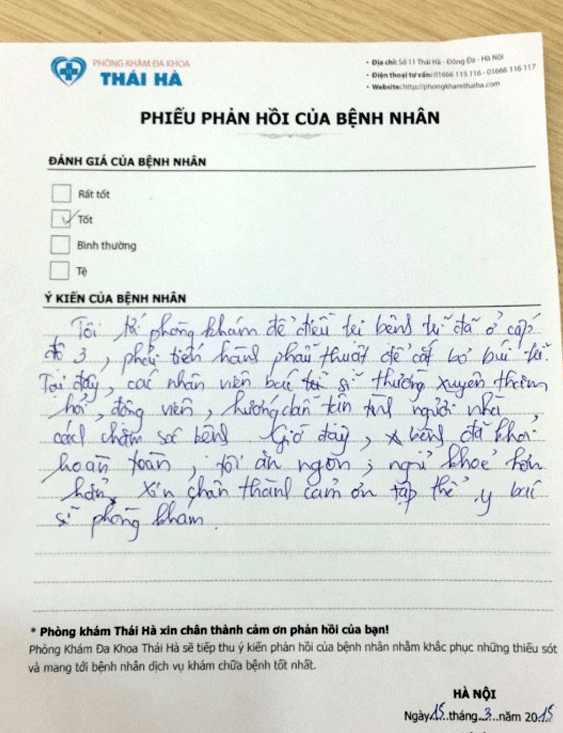 PHÒNG KHÁM ĐA KHOA
THÁI HÀ
• Địa chỉ: Số 11 Thái Hà - Đống Đa - Hà Nội
• Điện thoại tư vấn: 01666 115 116 - 01666 116 117
• Website: http://phongkhamthaiha.com
PHIẾU PHẢN HỒI CỦA BỆNH NHÂN
ĐÁNH GIÁ CỦA BỆNH NHÂN
Rất tốt
Tốt
Bình thường
Tệ
Ý KIẾN CỦA BỆNH NHÂN
Tôi tới phòng khám để điều trị bệnh trĩ đã ở cấp
độ 3, phải tiến hành phẫu thuật để cắt bỏ búi trĩ.
Tại đây, các nhân viên bác sĩ thường xuyên thăm
hỏi, động viên, hướng dẫn tận tình người nhà
cách chăm sóc bệnh. Giờ đây, bệnh đã khỏi
hoàn toàn, tôi ăn ngon, ngủ khoẻ hơn
hẳn. Xin chân thành cảm ơn tập thể y bác
sĩ phòng khám.
* Phòng khám Thái Hà xin chân thành cảm ơn phản hồi của bạn!
Phòng Khám Đa Khoa Thái Hà sẽ tiếp thu ý kiến phản hồi của bệnh nhân nhằm khắc phục những thiếu sót
và mang tới bệnh nhân dịch vụ khám chữa bệnh tốt nhất.
HÀ NỘI
Ngày 15 tháng 3 năm 2015